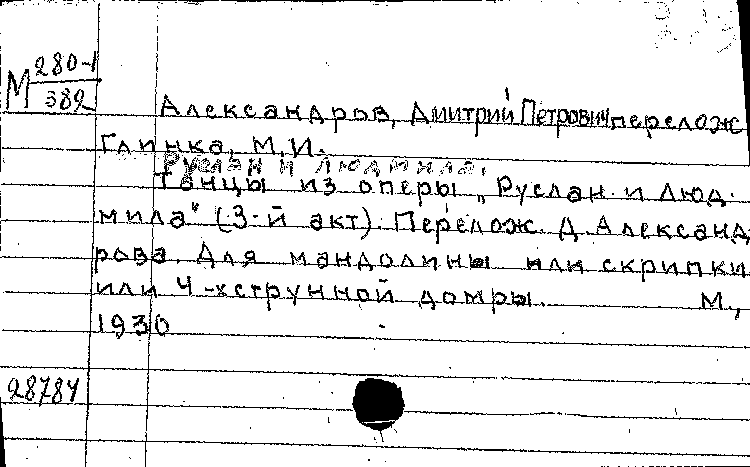 М 280-1
382
Александров, Дмитрий Петрович перелож
Глинка, М.И.
Руслан и Людмила.
Танцы из оперы „Руслан и Люд-
мила" (3-й акт). Перелож. Д. Александ
рова. Для мандолины или скрипки
или 4-хструнной домры. М.,
1930
28784